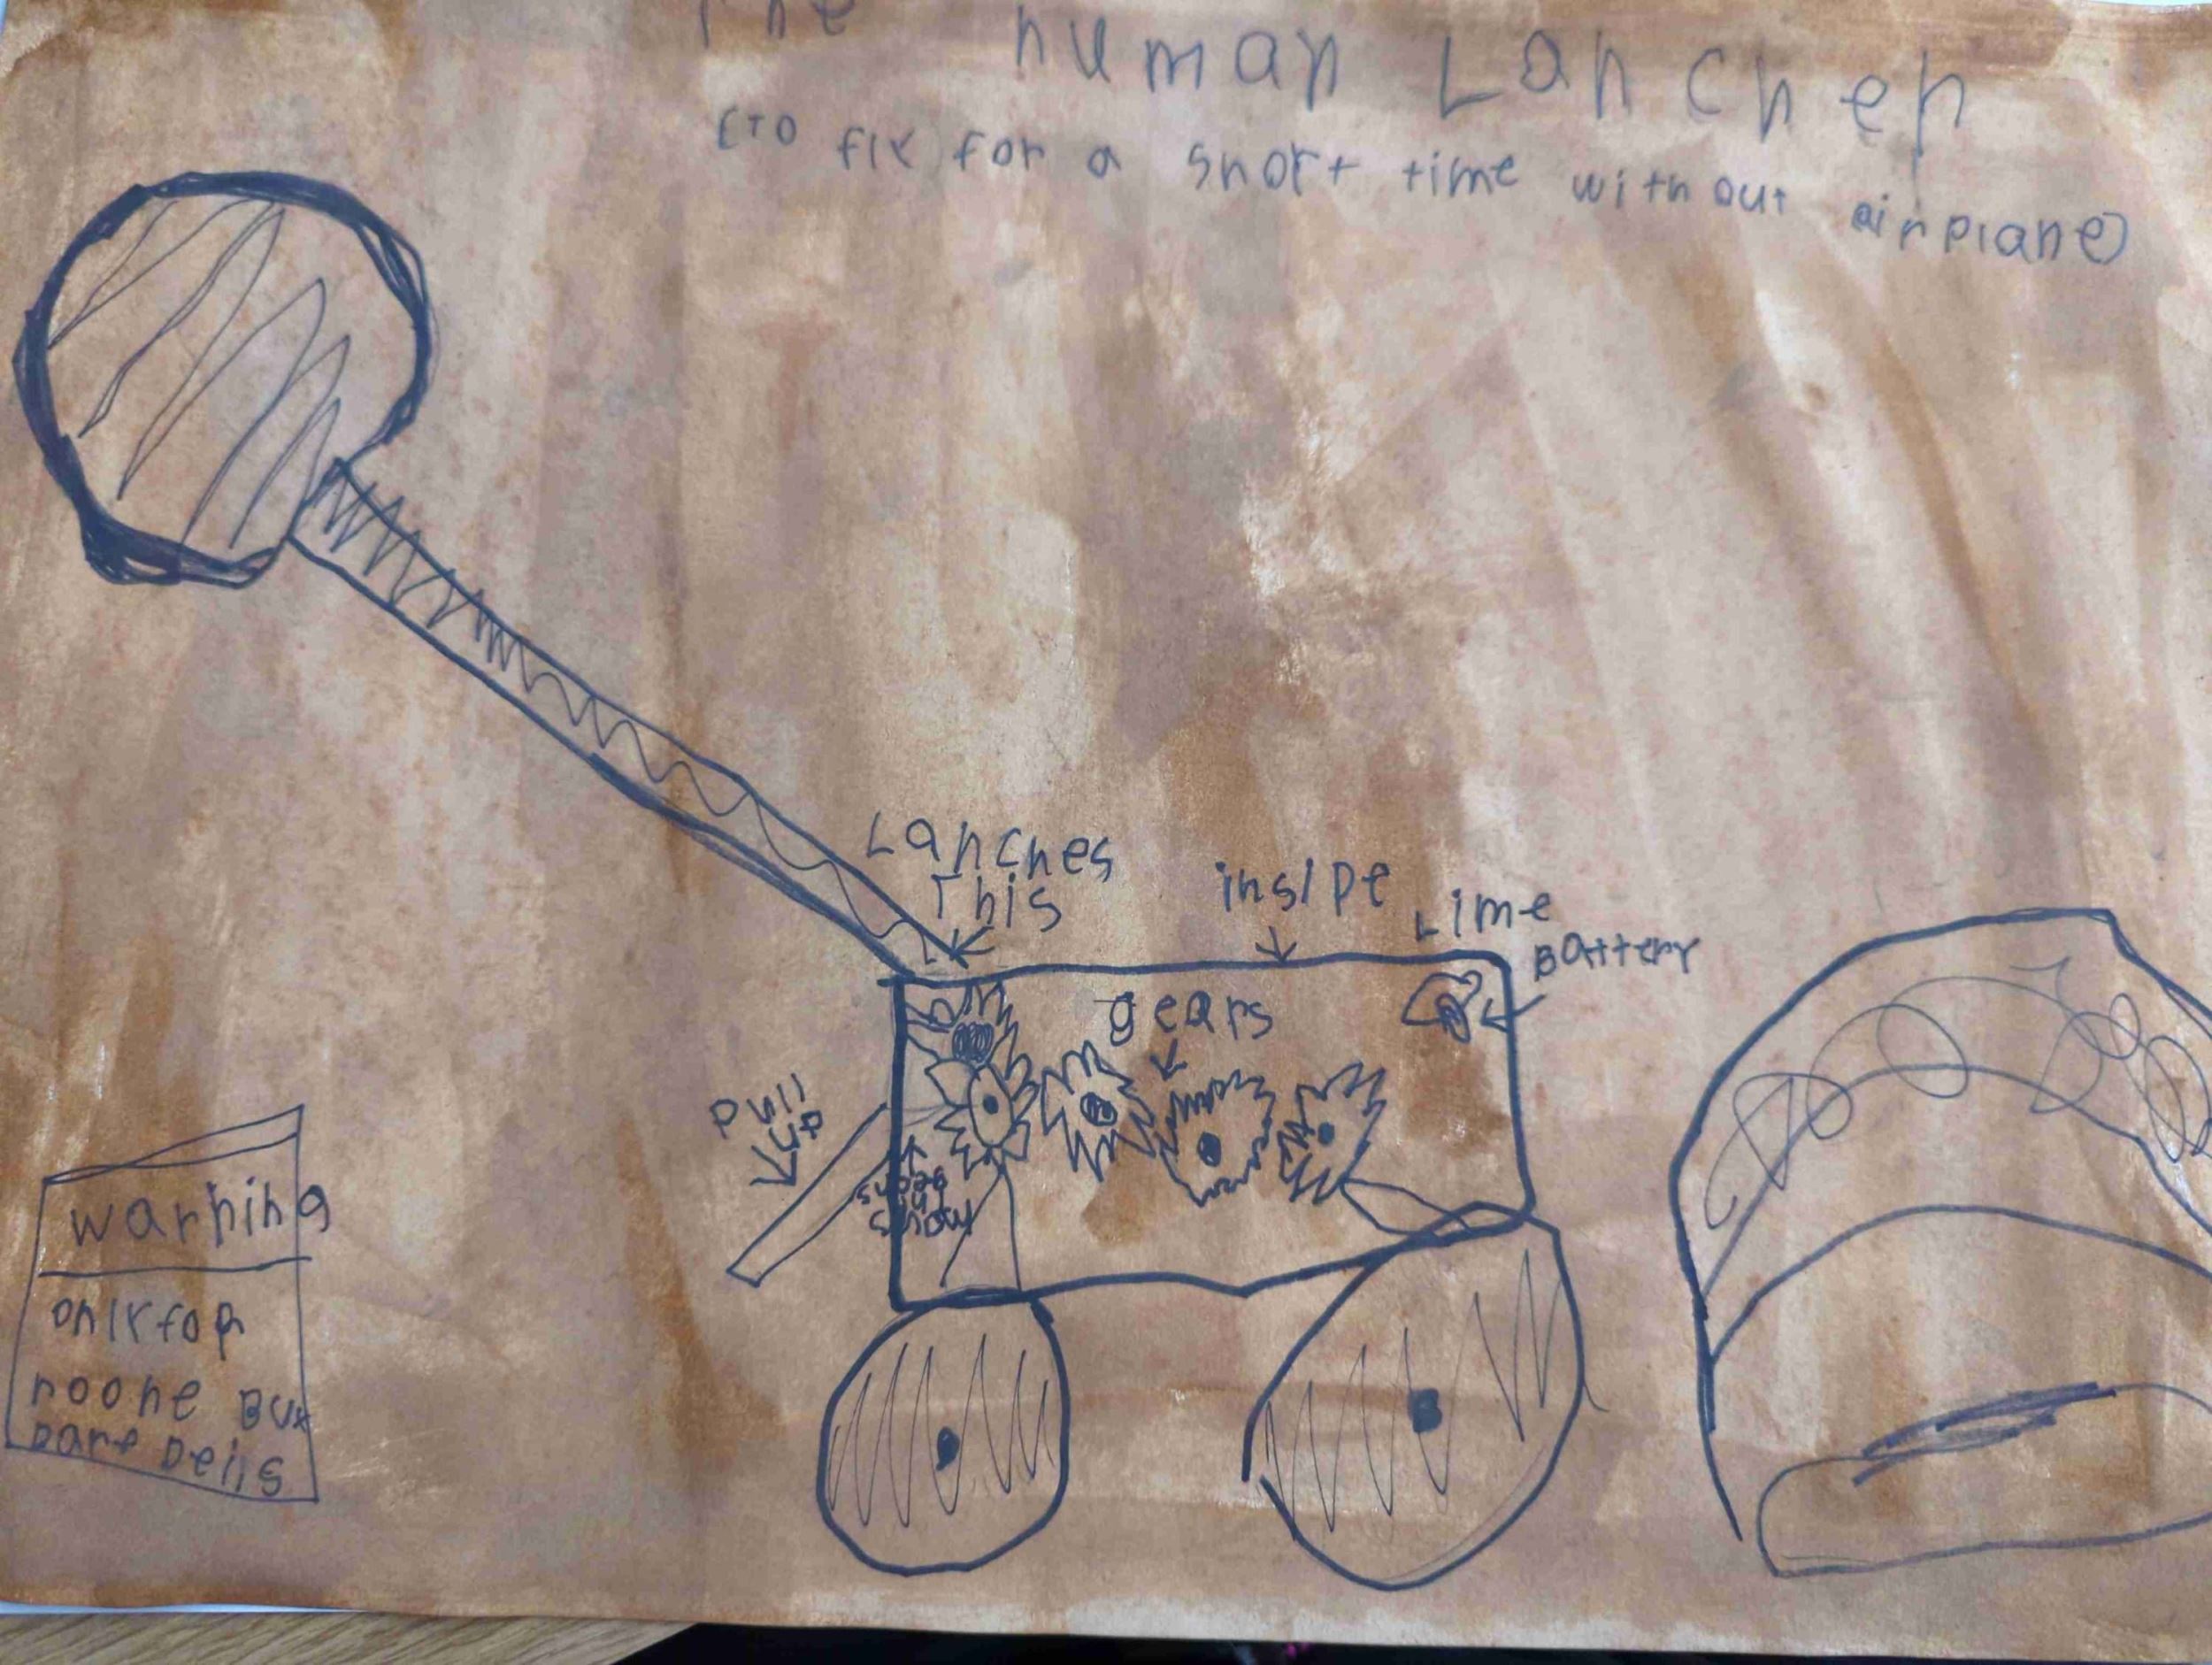 The human Lancher
(to fly) for a short time without airplane)
Lanches
This
inside
Lime
Battery
gears
pull
up
warning
only for
noone But
dare